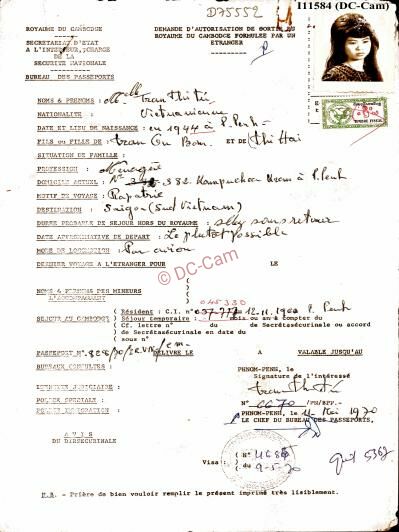 D75552
111584 (DC-Cam)
ROYAUME DU CAMBODGE
SECRETARIAT D'ETAT
A L'INTERIEUR, CHARGE
DE LA
SECURITE NATIONALE
BUREAU DES PASSEPORTS
DEMANDE D'AUTORISATION DE SORTIE DU
ROYAUME DU CAMBODGE FORMULEE PAR UN
ETRANGER
NOMS & PRENOMS : Melle Tran Thi Tú
NATIONALITE : Vietnamienne
DATE ET LIEU DE NAISSANCE : en 1944 à P. Penh
FILS ou FILLE DE : Tran On Bom. ET de Thi Hai
SITUATION DE FAMILLE :
PROFESSION : Ménagère
DOMICILE ACTUEL : N° 382 Kampuchea Krom à P. Penh
MOTIF DE VOYAGE : Rapatrié
DESTINATION : Saigon (Sud Vietnam)
DUREE PROBABLE DE SEJOUR HORS DU ROYAUME : sans retour
DATE APPROXIMATIVE DE DEPART : Le plutôt possible
MODE DE LOCOMOTION : Par avion
DERNIER VOYAGE A L'ETRANGER POUR LE
© DC-Cam
NOMS & PRENOMS DES MINEURS
L'ACCOMPAGNANT
045330
SEJOUR AU CAMBODGE
( Résident : C.I. N° 12.11. P. Penh
( Séjour temporaire : mois ou an à Compter du
( Cf. lettre n° du de Secrétasécurite ou accord
( de Secrétasécurite en date du
( sous n°
PASSEPORT N° 828/70 DELIVRE LE A VALABLE JUSQU'AU
BUREAUX CONSULTES :
IDENTITE JUDICIAIRE :
POLICE SPECIALE :
POLICE IMMIGRATION :
PHNOM-PENH, le
Signature de l'intéressé
tran thi tú
N° 6670 /PH/BPP.-
PHNOM-PENH, le 11 Mai 1970
LE CHEF DU BUREAU DES PASSEPORTS,
A V I S
DU DIRSECURINALE
Visa: ( N° 4686
( du 9-5-70
5362
N.B. - Prière de bien vouloir remplir le présent imprimé très lisiblement.